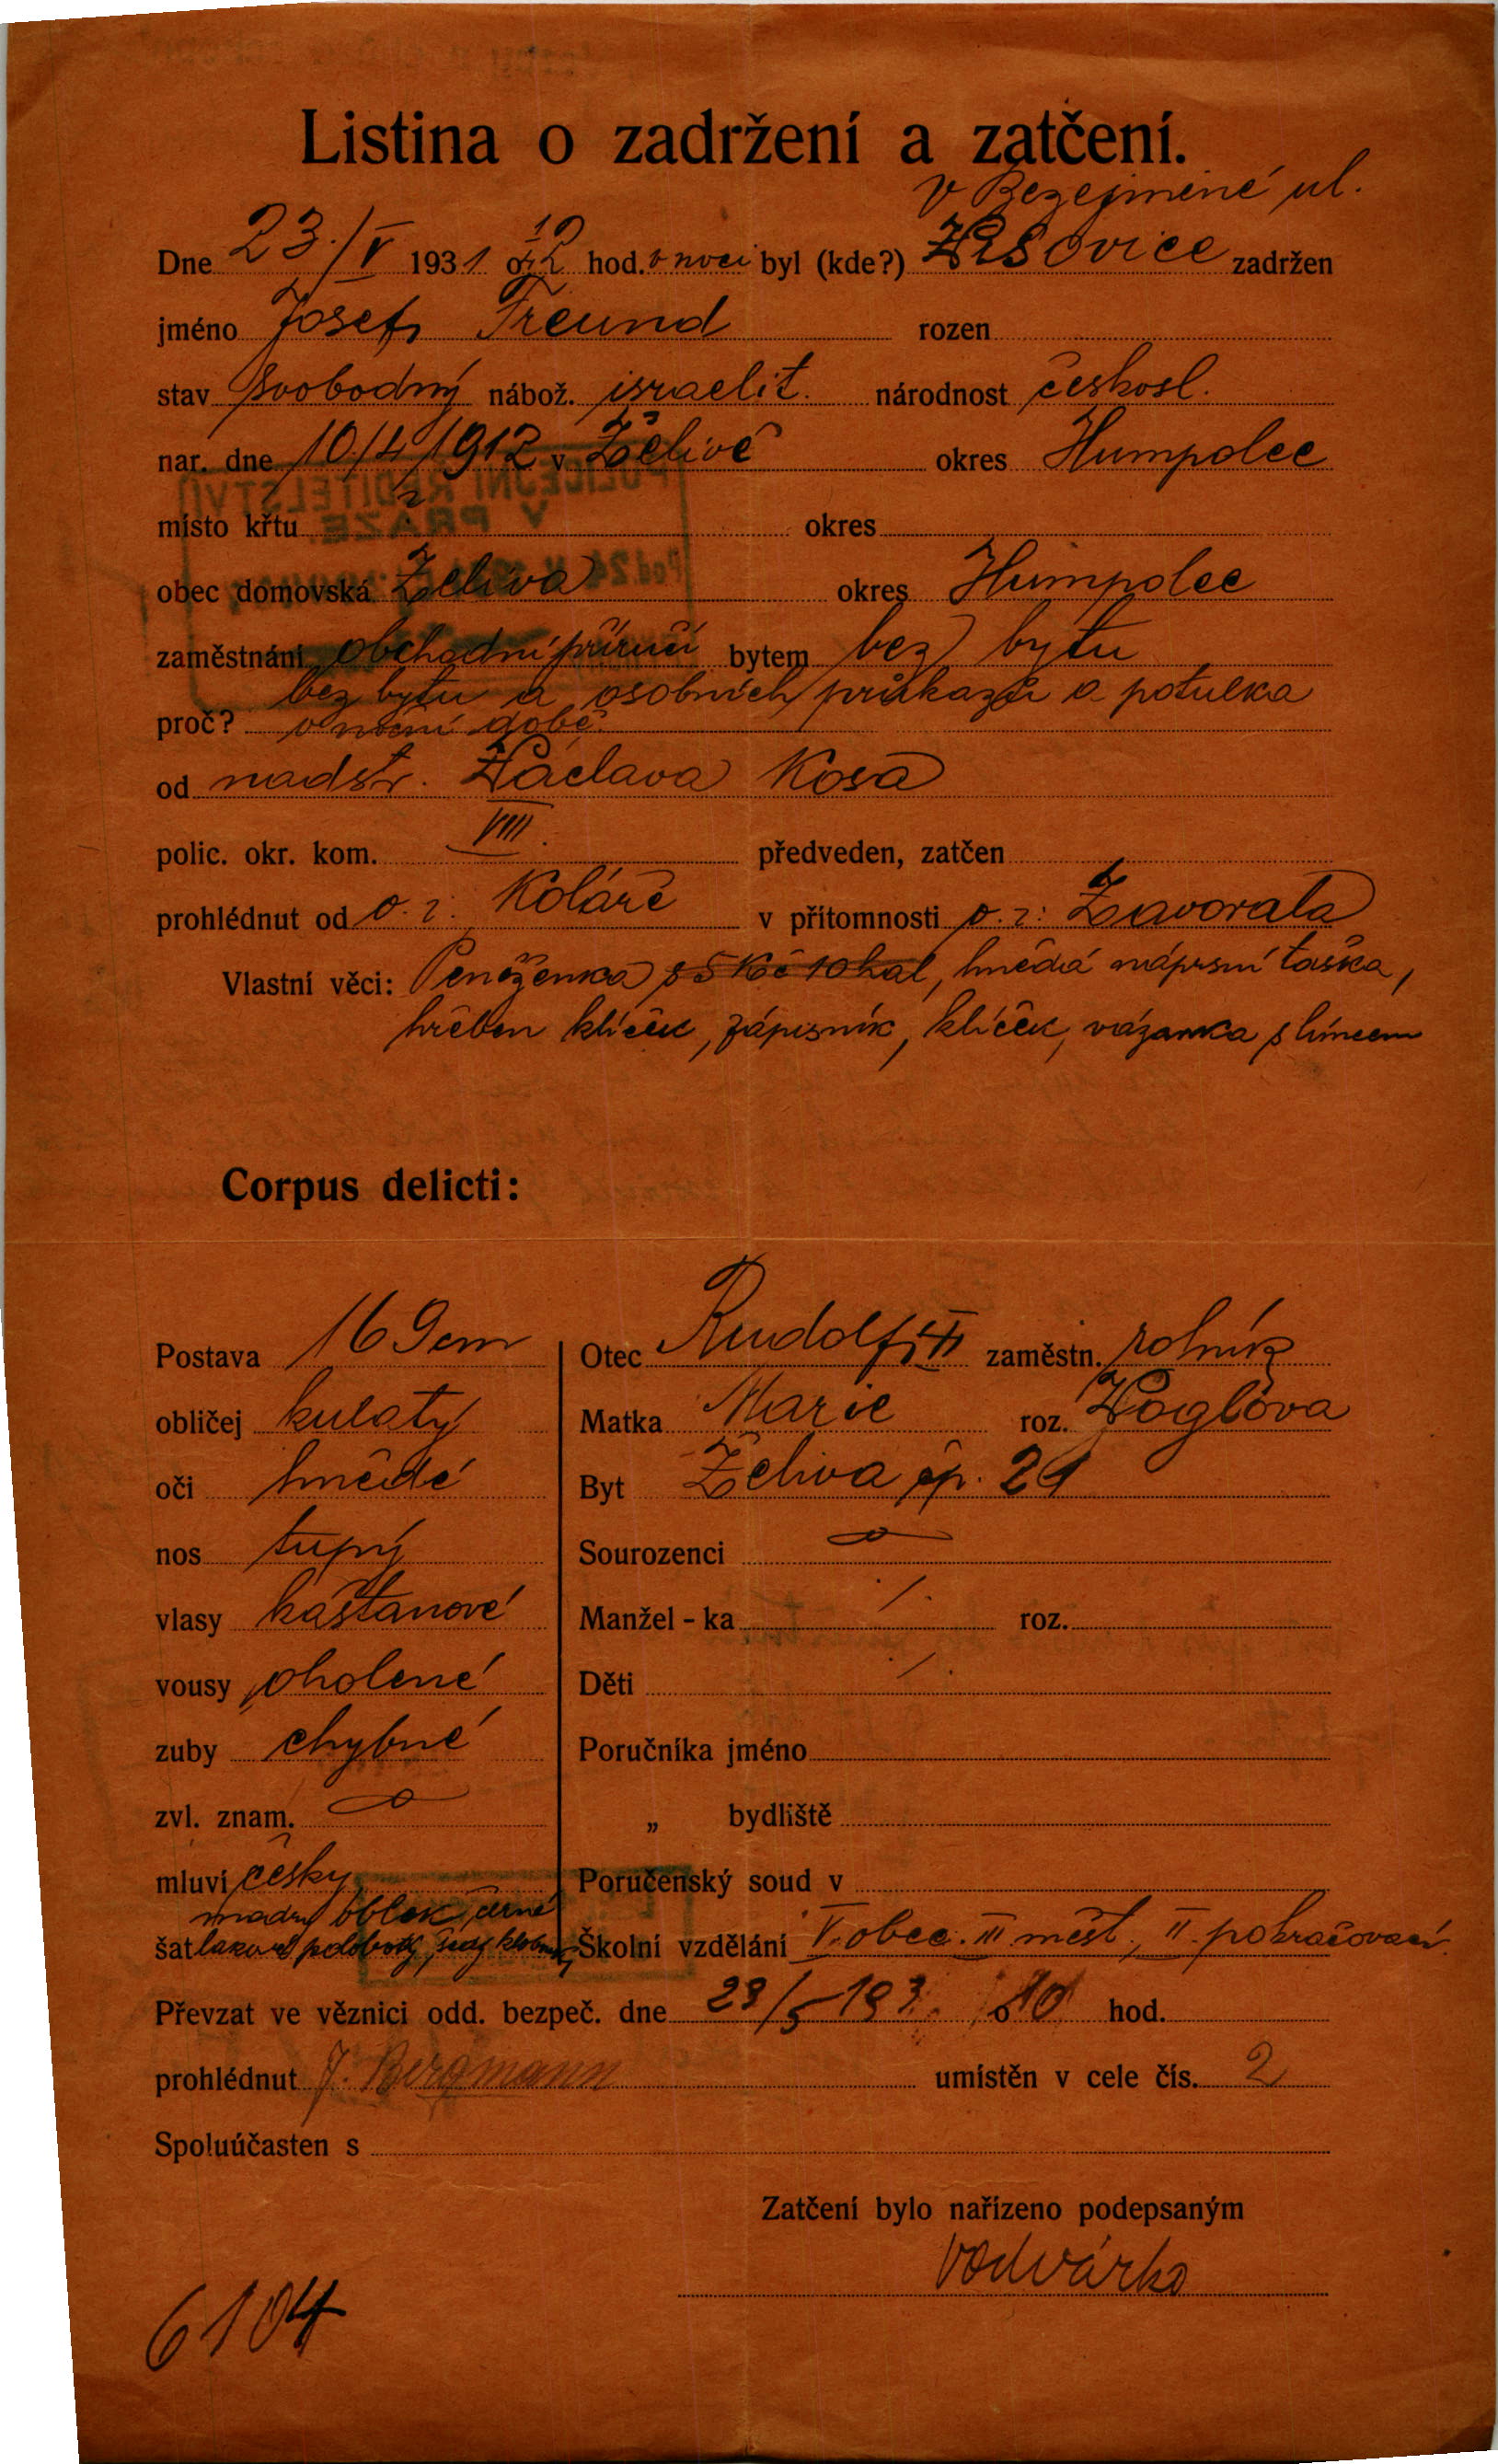 Listina o zadržení a zatčení.
v Bezejmené ul.
Dne 23./V 1931 o 12 hod. v noci byl (kde?) Vršovice zadržen
jméno Josef Freund rozen
stav svobodný nábož. israelit. národnost českosl.
nar. dne 10/4 1912 v Želivě okres Humpolec
místo křtu okres
obec domovská Želiva okres Humpolec
zaměstnání obchodní příručí bytem bez bytu
bez bytu a osobních průkazů a potulka
proč? v noční době.
od nadstr. Václava Kosa
polic. okr. kom. VIII. předveden, zatčen
prohlédnut od o. r. Koláře v přítomnosti o. r. Zavorala
Vlastní věci: Peněženka s 5 Kč 10 hal, hnědá náprsní taška,
hřeben klíček, zápisník, klíček, vázanka s límcem
Corpus delicti:
Postava 169 cm Otec Rudolf zaměstn. rolník
obličej kulatý Matka Marie roz. Voglova
oči hnědé Byt Želiva čp. 29
nos tupý Sourozenci
vlasy kaštanové Manžel - ka ./. roz.
vousy oholené Děti ./.
zuby chybné Poručníka jméno
zvl. znam. „ bydliště
mluví česky Poručenský soud v
modrý oblek, černé
šat lakové polobotky, šedý klobouk Školní vzdělání V. obec. III. měšt., II. pokračovací
Převzat ve věznici odd. bezpeč. dne 23/5 193 o 10 hod.
prohlédnut J. Bergmann umístěn v cele čís. 2
Spoluúčasten s
Zatčení bylo nařízeno podepsaným
Vodvárko
6104